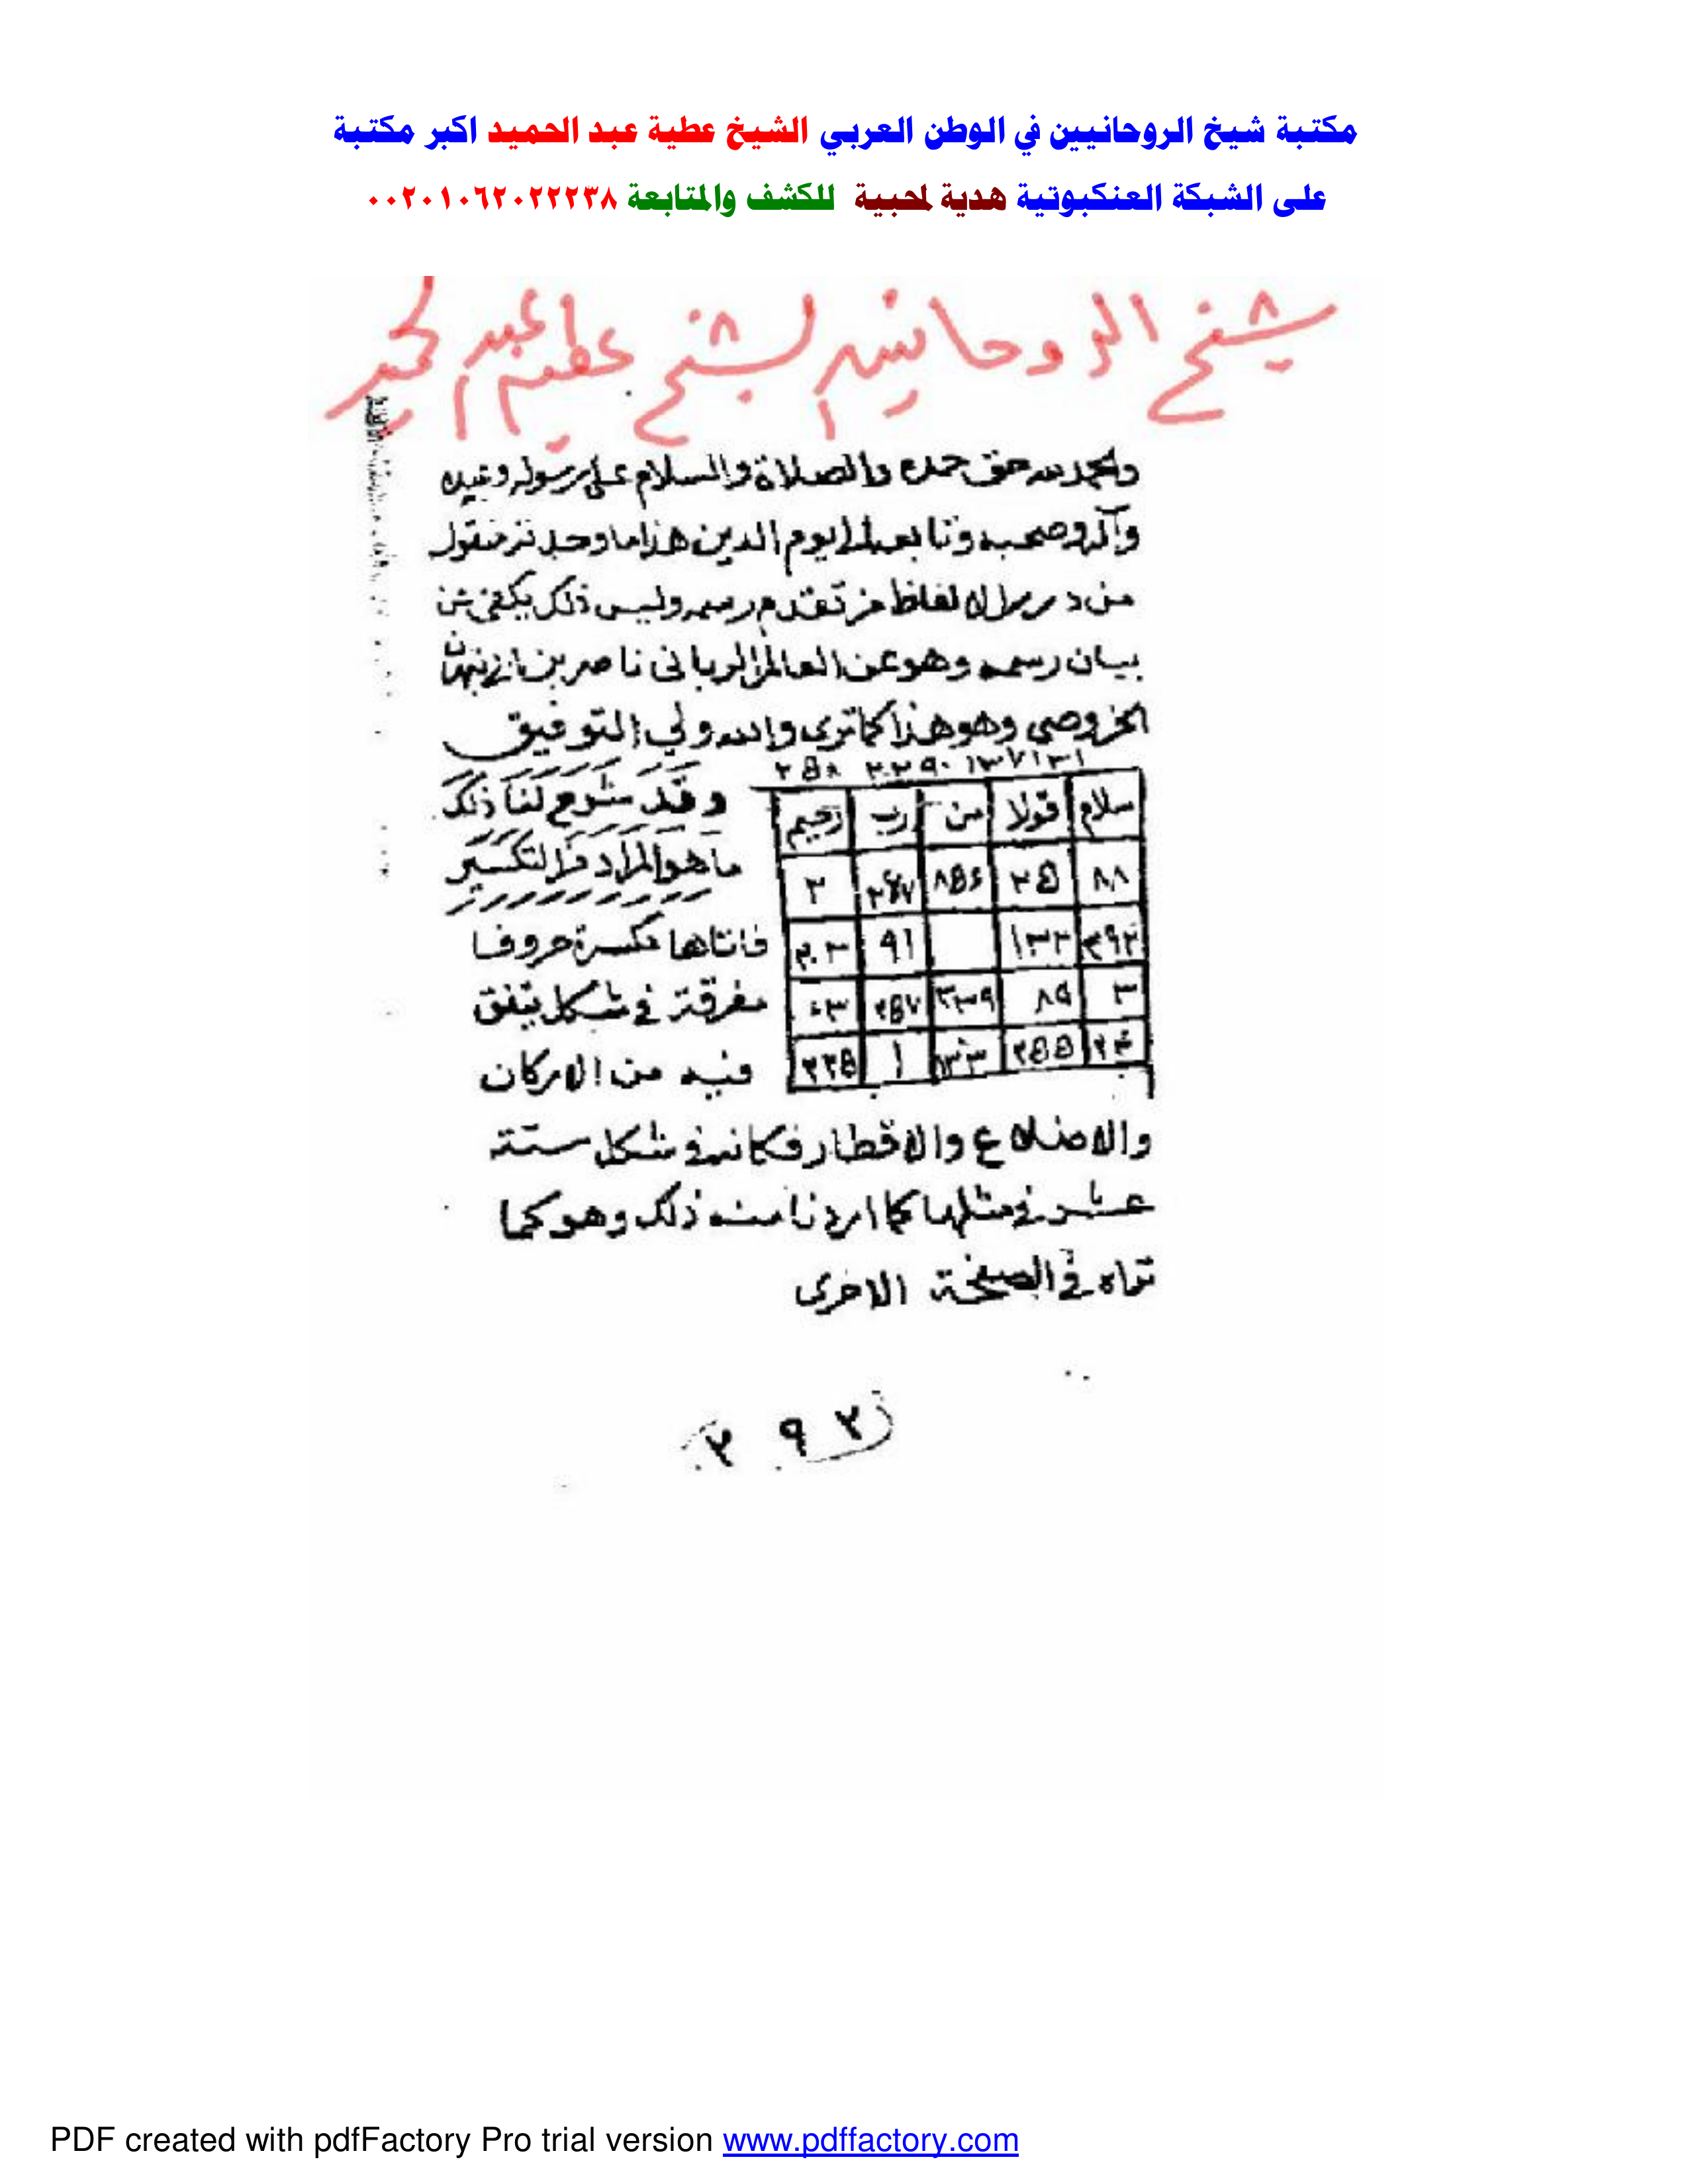 مكتبة شيخ الروحانيين في الوطن العربي الشيخ عطية عبد الحميد اكبر مكتبة
على الشبكة العنكبوتية هدية لمحبية للكشف والمتابعة ٠٠٢٠١٠٦٢٠٢٢٢٣٨
شيخ الروحانيين الشيخ عطيه عبد الحميد
والحمد لله حق حمده والصلاة والسلام على رسوله وعبده
وآله وصحبه وتابعه الى يوم الدين هذا ما وجدته منقول
من الالفاظ من تقدم رسمه وليس ذلك يكفى عن
بيان رسمه وهو عن العالم الربانى ناصر بن
الخروصي وهو هذا كما ترى والله ولي التوفيق
١٣١ ١٣٧ ٩٠ ٢٥٨
سلام قولا من رب رحيم
وقد شرع لنا ذلك
٨٨ ٢٥ ٢
ما هو المراد فى التكسير
١٣٢ ٩١
فاتاها مكسرة حروفا
٣ ٨٩ ٣٣٩ ٢٥٧
مفرقة في شكل يتفق
٢٥٥ ١ ٢٢٥
فيه من الاركان
والاضلاع والاقطار فكانه في شكل ستة
عشر في مثلها كما اردنا منه ذلك وهو كما
تراه في الصفحة الاخرى
٢٩٢
PDF created with pdfFactory Pro trial version www.pdffactory.com